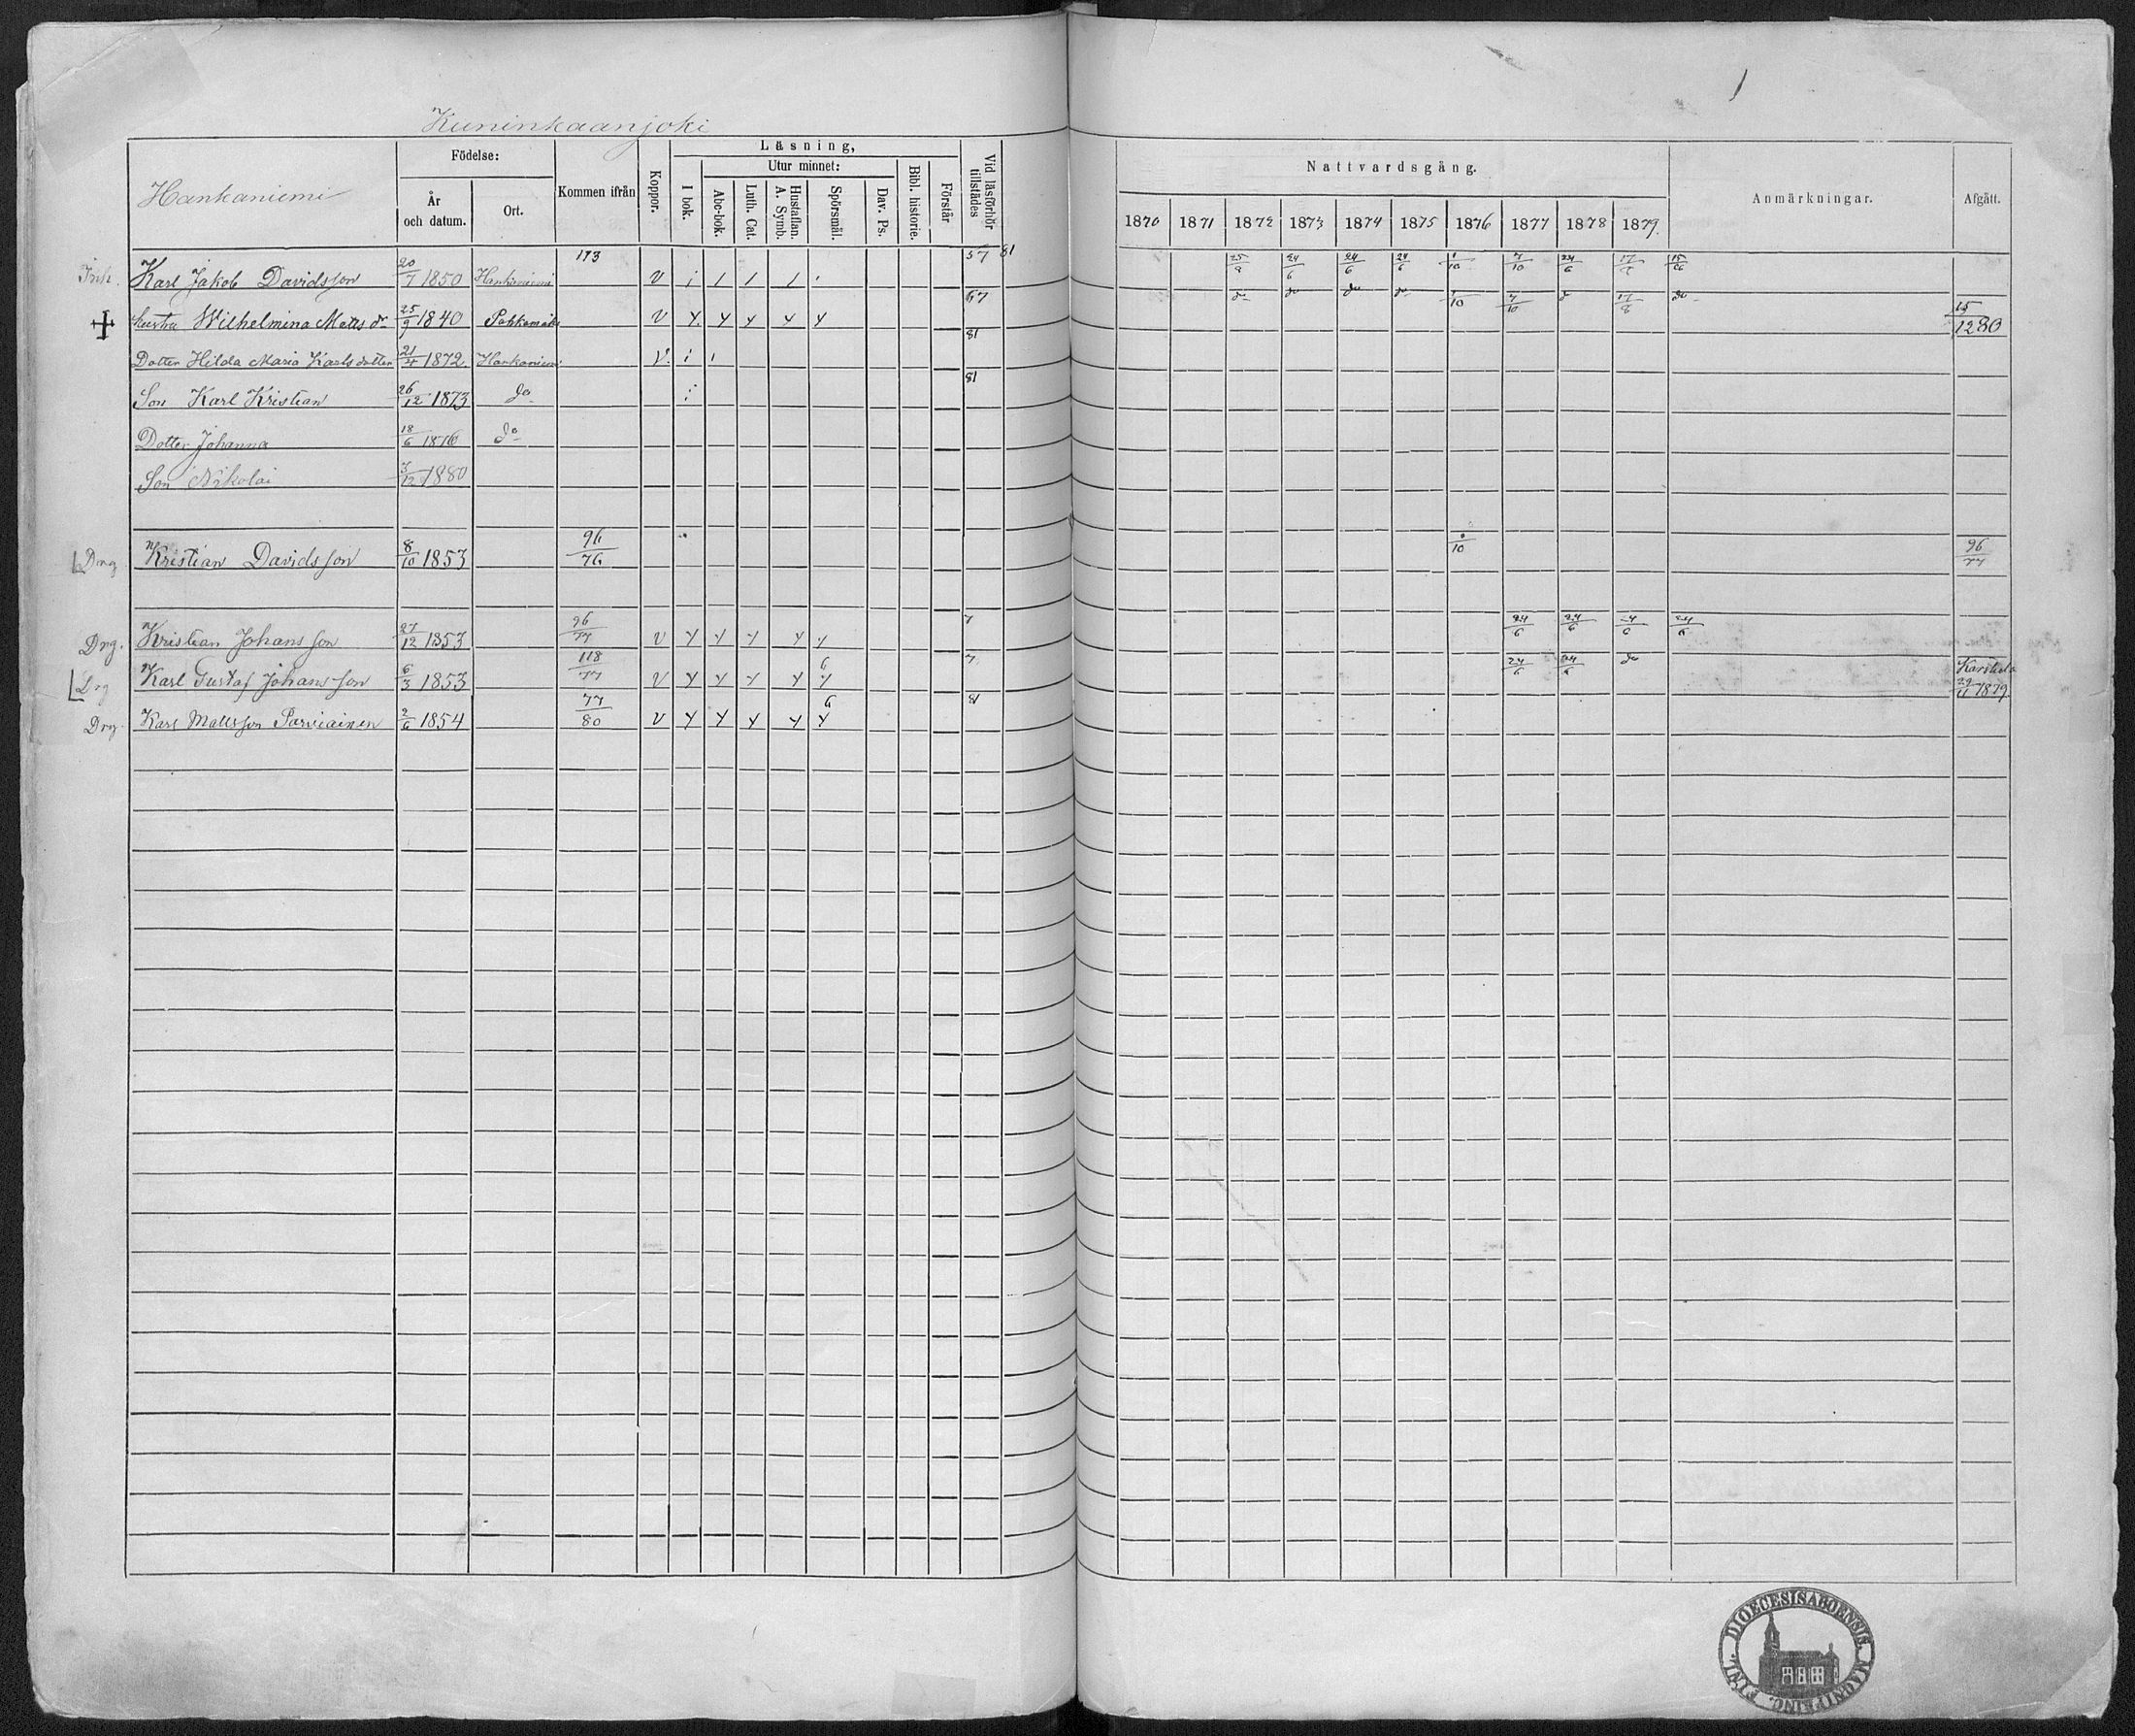 1
Kuninkaanjoki
Hankaniemi
Födelse:
År och datum.
Ort.
Kommen ifrån
Koppor.
Läsning,
I bok.
Utur minnet:
Abc-bok.
Luth. Cat.
Hustaflan. A. Symb.
Spörsmål.
Dav. Ps.
Bibl. historie.
Förstår
Vid läsförhör tillstädes
Nattvardsgång.
1870 1871 1872 1873 1874 1875 1876 1877 1878 1879
Anmärkningar.
Afgått.
Inh. Karl Jakob Davidsson 20/7 1850 Hankaniemi 173 V 57 81 24/6 24/6 24/6 7/10 24/6
hustru Wilhelmina Matts dr 25/9 1840 V y y y y y 67 do do do do 7/10 do 1280
Dotter Hilda Maria Karlsdotter 21/4 1872 Hankaniemi V 81
Son Karl Kristian 26/12 1873 do 81
Dotter Johanna 18/6 1876 do
Son Nikolai 3/12 1880
Drg Kristian Davidsson 8/10 1853 96/76 96/77
Drg. Kristian Johansson 27/12 1853 96/77 V y y y y y 7 24/6 24/6 24/6 24/6
Drg Karl Gustaf Johansson 6/3 1853 118/77 V y y y y y 6 7 24/6 24/6 do Karstula 29/11 1879
Drg. Karl Mattsson Parviainen 2/6 1854 77/80 V y y y y y 6 81
DIOECESIS ABOENSIS. MAGNI PRINC. FINL.